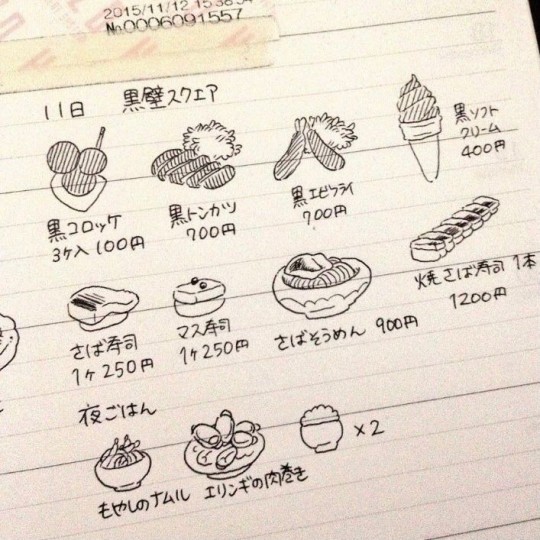 2015/11/12 15
No0006091557
11日 黒壁スクエア
黒コロッケ
3ケ入 100円
黒トンカツ
700円
黒エビフライ
700円
黒ソフト
クリーム
400円
さば寿司
1ヶ250円
マス寿司
1ヶ250円
さばそうめん 900円
焼さば寿司 1本
1200円
夜ごはん
もやしのナムル
エリンギの肉巻き
×2